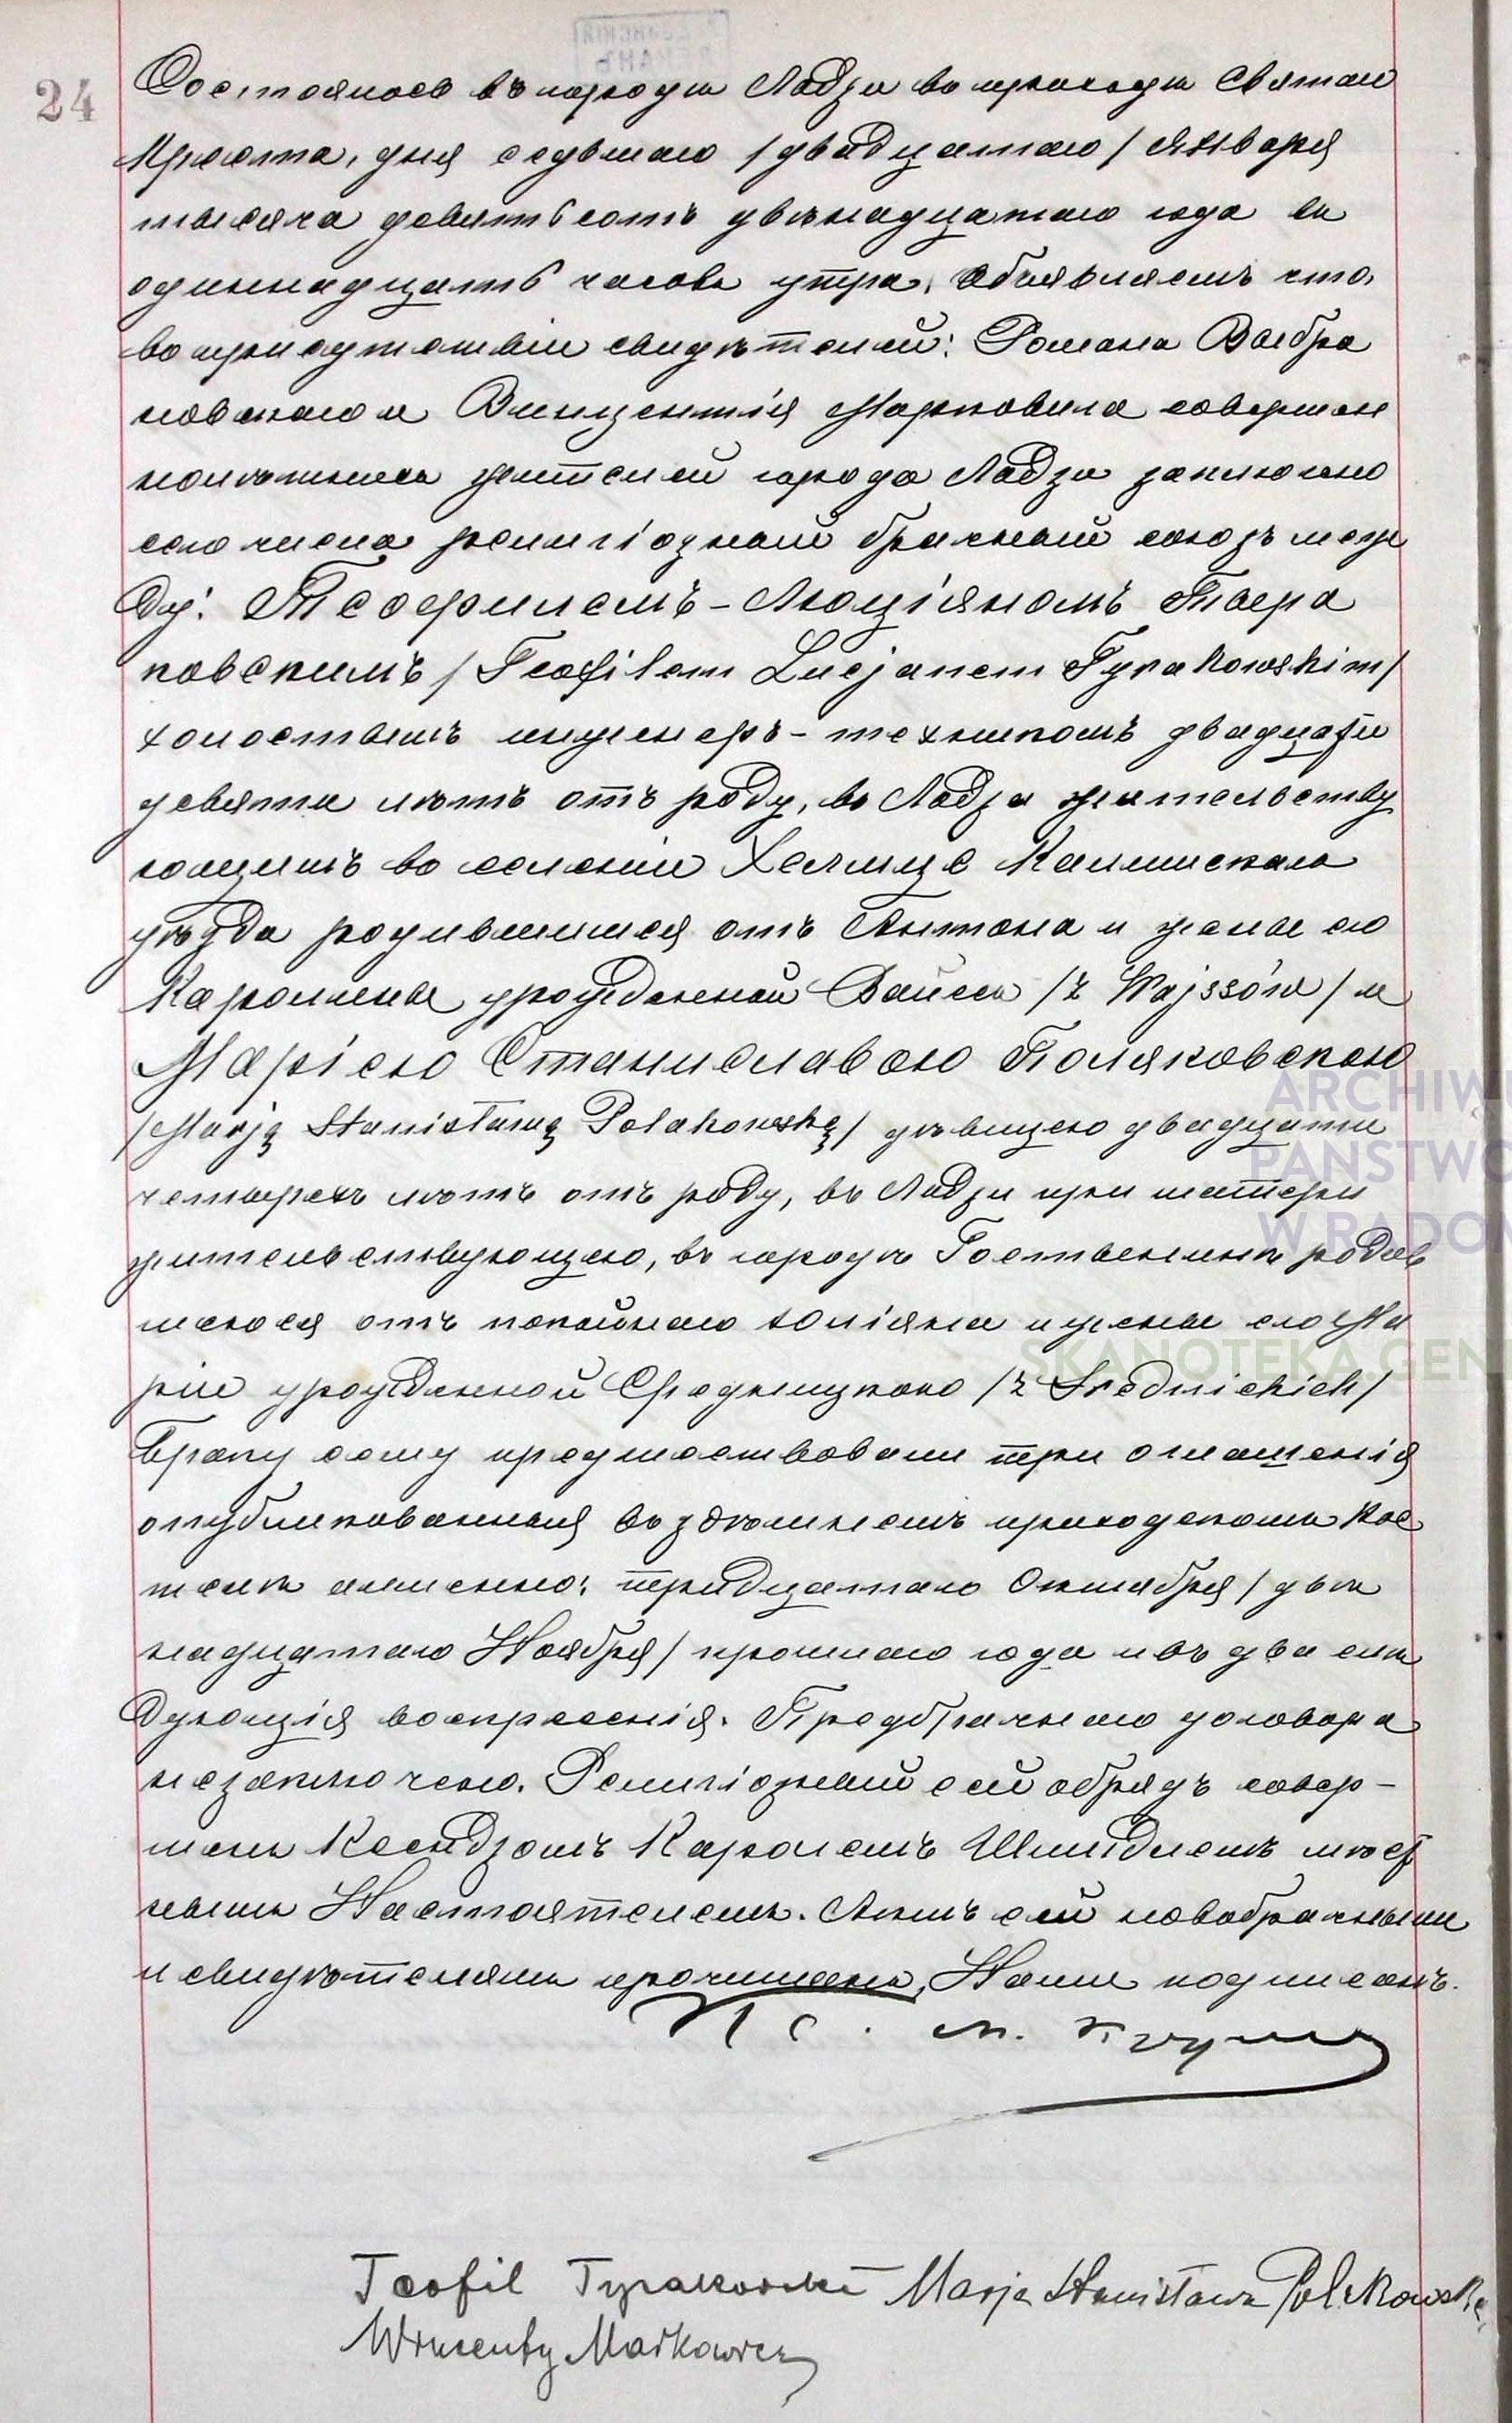 24
Состоялось въ городѣ Лодзи въ приходѣ Святаго
Креста, дня седьмаго /двадцатаго/ Января
тысяча девятьсотъ двѣнадцатаго года въ
одиннадцать часовъ утра. Объявляемъ что,
въ присутствіи свидѣтелей: Романа
и Винцентія Марковича совершен
нолѣтнихъ жителей города Лодзи заключено
сего числа религіозный брачный союзъ меж
ду: Теофилемъ-Люціяномъ Тыра
ковскимъ /Teofilem Lucjanem Tyrakowskim/
холостымъ инженеръ-техникомъ двадцати
девяти лѣтъ отъ роду, въ Лодзи жительству
ющимъ въ селеніи Хелмце Калишскаго
уѣзда родившимся отъ Антона и жены его
Каролины урожденной Вайсъ /z Wajssów/ и
Маріею Станиславою Поляковскою
/Marją Stanisławą Polakowską/ дѣвицею двадцати
четырехъ лѣтъ отъ роду, въ Лодзи при матери
жительствующею, въ городѣ Гостынинѣ родив
шеюся отъ покойнаго Юліяна и жены его Ма
ріи урожденной Средницкою /z Srednickich/
Браку сему предшествовали три оглашенія
опубликованныя въ здѣшнемъ приходскомъ Кос
телѣ именно: тридцатаго Октября /двѣ
надцатаго Ноября/ прошлаго года и въ два слѣ
дующія воскресенія. Предбрачнаго договора
незаключено. Религіозный сей обрядъ совер-
шенъ Ксендзомъ Каролемъ Шмиделемъ мѣст
нымъ Настоятелемъ. Актъ сей новобрачнымъ
и свидѣтелямъ прочитанъ, Нами подписанъ.
Teofil Tyrakowski Marja Stanisława Polakowska
Wincenty Markowicz
ARCHIWU
PAŃSTWO
W RADOM
SKANOTEKA GEN